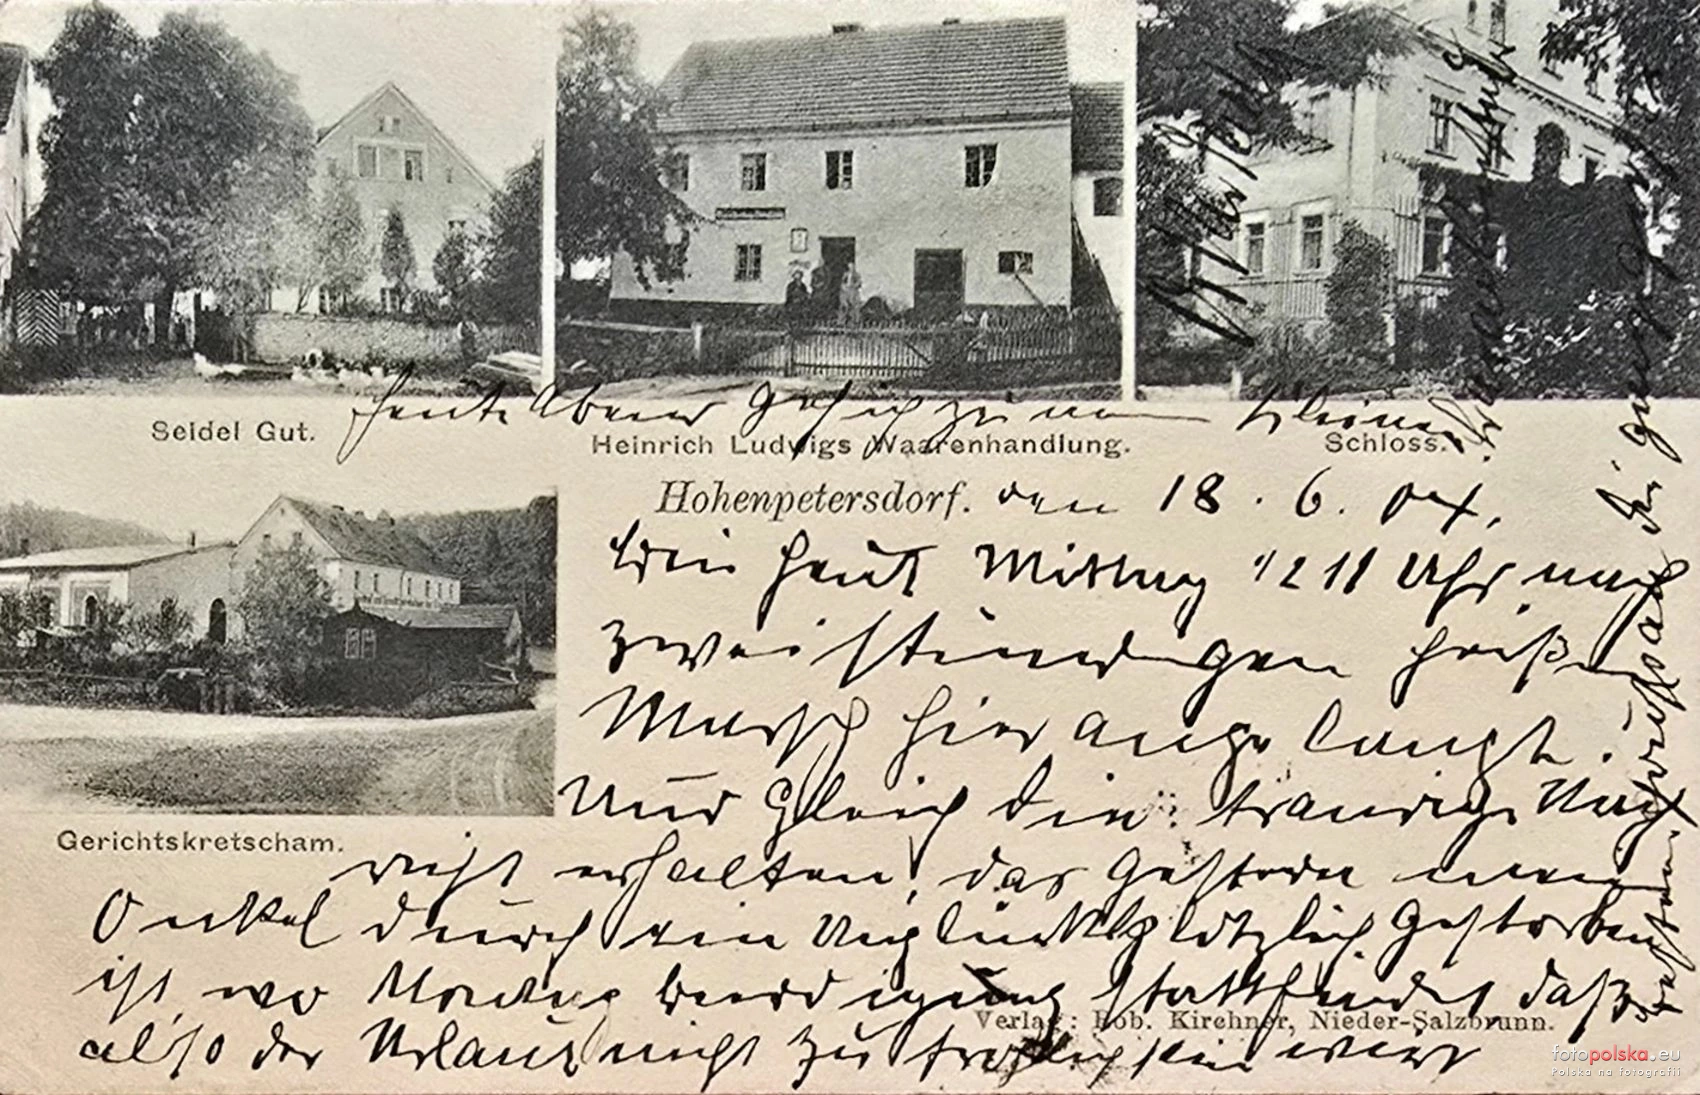 Seidel Gut.
Heinrich Ludwigs Waarenhandlung.
Schloss.
heute Abend
kleine
Hohenpetersdorf. den 18. 6. 04.
Bin heut Mittag 1/2 11 Uhr nach
zweistündigen heißen
Marsch hier angelangt.
Nur gleich die traurige Nach
Gerichtskretscham.
richt erhalten, das gestern mein
Onkel durch ein Unglück plötzlich gestorben
ist, wo Montag beerdigung stattfindet, daß
also der Urlaub nicht zu fröhlich sein wird
Verlag: Rob. Kirchner, Nieder-Salzbrunn.
fotopolska.eu
Polska na fotografii